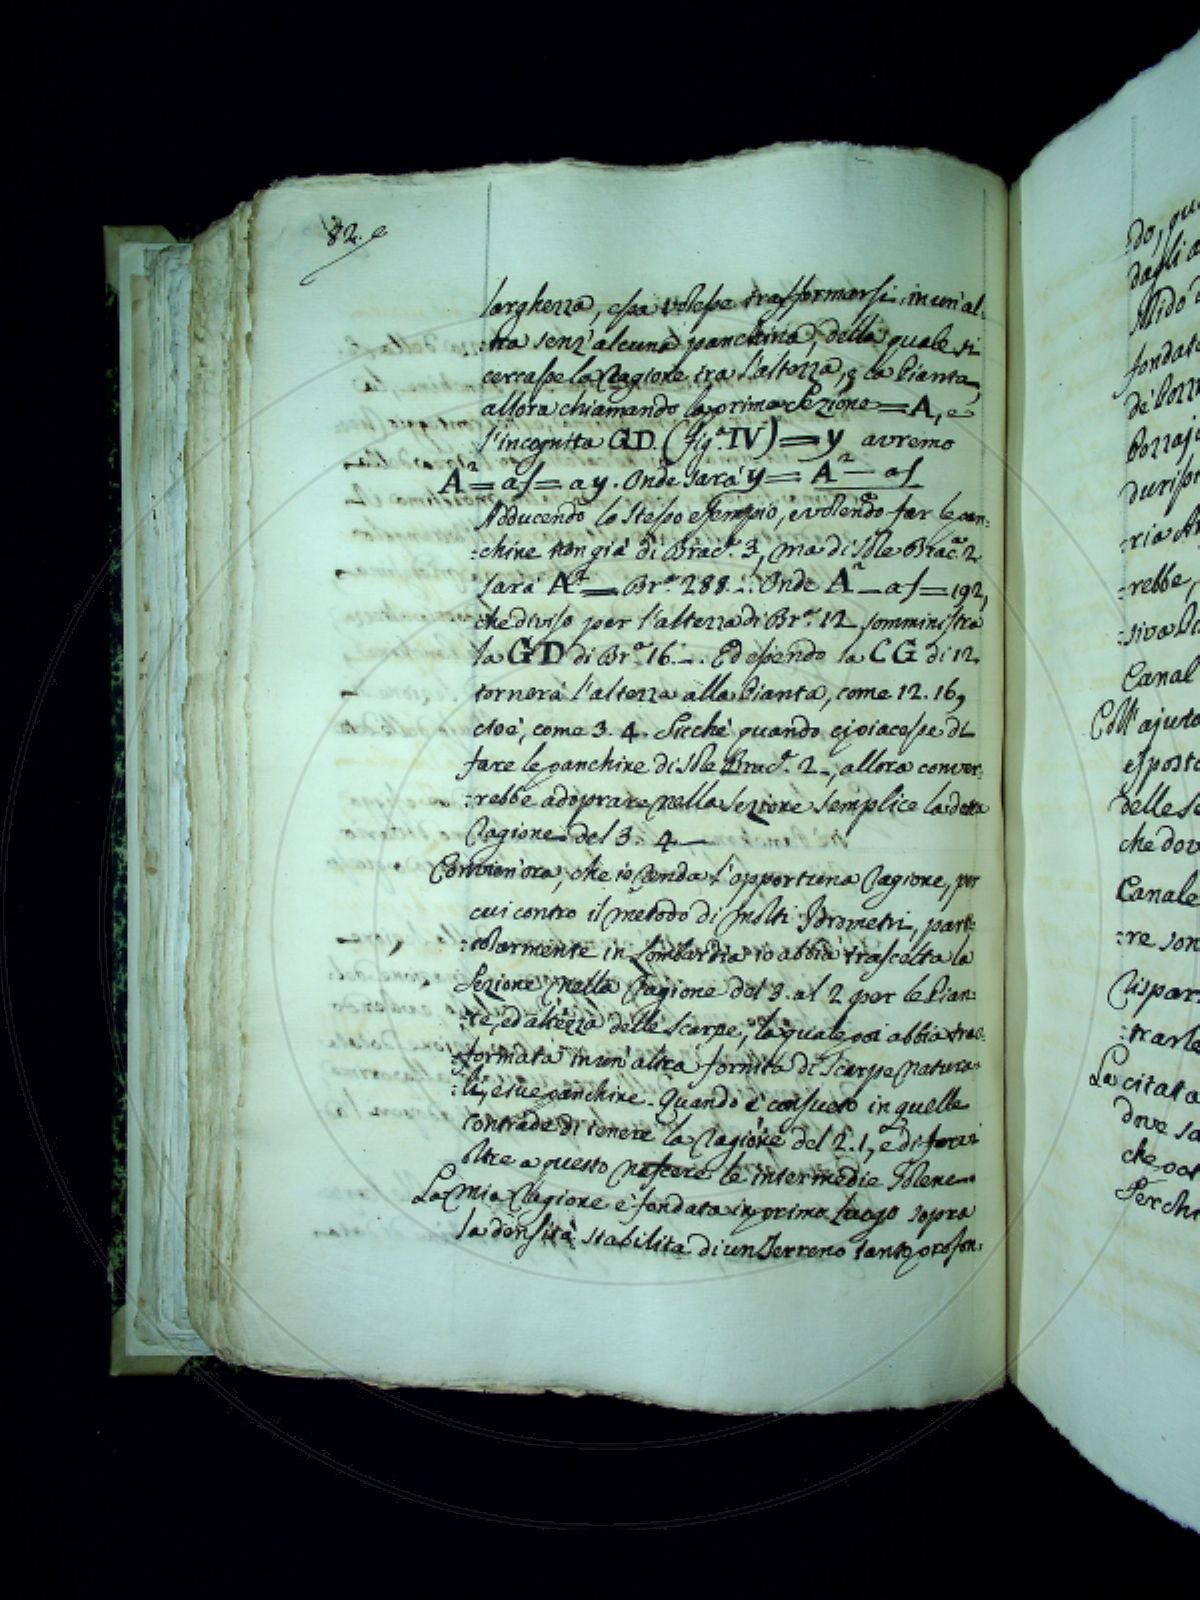 82. e
larghezza, essa volesse trasformarsi in un' al-
:tra senz' alcuna panchina, della quale si
cercasse la ragione tra l'altezza, e la Pianta,
allora chiamando la prima Sezione = A, e
l'incognita GD. (fig.ª IV) = y avremo
A² = af = ay. Onde sarà y = A² – af
Adducendo lo stesso esempio, e volendo far le pan-
:chine non già di Brac.ª 3, ma di sole Brac.ª 2
sarà A² = Br.ª 288 –. Onde A² – af = 192,
che diviso per l'altezza di Br.ª 12 somministra
la GD di Br.ª 16. –. Ed essendo la CG di 12
tornerà l'altezza alla Pianta, come 12. 16,
cioè, come 3. 4. Sicchè quando ci piacesse di
fare le panchine di sole Brac.ª 2 –, allora conver-
:rebbe adoprare nella sezione semplice la detta
ragione del 3. 4 —
Convien' ora, che io renda l'opportuna ragione, per
cui contro il metodo di molti Idrometri, parti-
:colarmente in Lombardia io abbia trascelta la
Sezione nella ragione del 3. al 2 per le Pian-
:te, ed altezza delle scarpe, la quale poi abbia tras-
:formata in un' altra fornita di Scarpe natura-
:li, e sue panchine. Quando è consueto in quelle
contrade di tenere la ragione del 2. 1, e di farvi
oltre a questo nascere le intermedie Solene
La mia ragione è fondata in primo luogo sopra
la densità stabilita di un Terreno tanto profon-
:do, qu
dagli a
Mido
fondat
de' Pozz
Pozza
:ria
:rebbe,
:siva
Canal
Coll' ajuto
esposto
delle S
che dov
Canale
:re son
:trarle
La citata
dove sa
che po
Perch